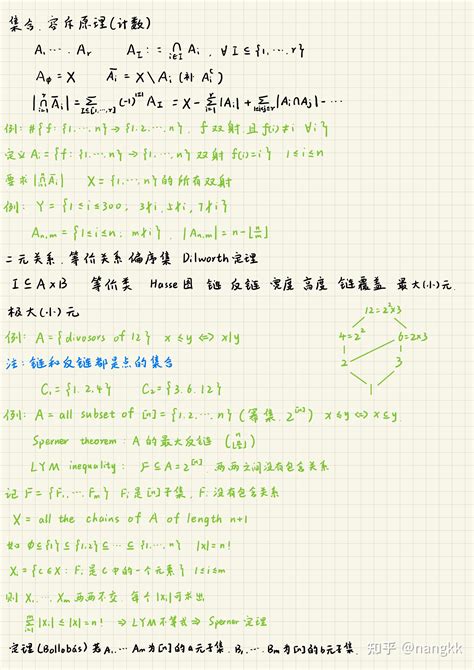 集合、容斥原理(计数)
A₁, … Aᵣ   A_I := ∩_{i∈I} Aᵢ, ∀I⊆{1,…,r}
A_∅ = X   Āᵢ = X\Aᵢ (补 Aᵢᶜ)
|∩_{i=1}^r Āᵢ| = Σ_{I⊆{1,…,r}} (-1)^{|I|} A_I = X - Σ_{i=1}^r |Aᵢ| + Σ_{1≤i<j≤r} |Aᵢ∩Aⱼ| - …
例: #{f: {1,…,n} → {1,2,…,n}, f双射, 且 f(i)≠i ∀i}
定义 Aᵢ = {f: {1,…,n} → {1,…,n} 双射 f(i)=i} 1≤i≤n
要求 |∩Āᵢ|   X = {1,…,n} → {1,…,n} 的所有双射
例: Y = {1≤i≤300, 3∤i, 5∤i, 7∤i}
A_{n,m} = {1≤i≤n, m∤i}, |A_{n,m}| = n-⌊n/m⌋
二元关系、等价关系 偏序集 Dilworth定理
I ⊆ A×B 等价类 Hasse图 链 反链 宽度 高度 链覆盖 最大(小)元
极大(小)元
例: A = {divosors of 12} x≤y ⇔ x|y
注: 链和反链都是点的集合
C₁ = {1,2,4}   C₂ = {3,6,12}
12=2²×3
4=2²   6=2×3
2   3
1
例: A = all subset of [n] = {1,2,…,n} (幂集 2^{[n]}) x≤y ⇔ x⊆y
Sperner theorem: A的最大反链 (n ⌊n/2⌋)
LYM inequality: F⊆A=2^{[n]} 两两之间没有包含关系
记 F = {F₁,…Fₘ} Fᵢ是[n]子集, Fᵢ没有包含关系
X = all the chains of A of length n+1
如 ∅⊆{1}⊆{1,2}⊆…⊆{1,…,n} |X|=n!
Xᵢ = {C∈X: Fᵢ是C中的一个元素} 1≤i≤m
则 X₁,…,Xₘ 两两不交, 每个|Xᵢ|可求出
Σ_{i=1}^m |Xᵢ| ≤ n! ⇒ LYM不等式 ⇒ Sperner定理
定理 (Bollobás) 若 A₁,…Aₘ为[n]的a元子集, B₁,…Bₘ为[n]的b元子集
知乎 @nangkk